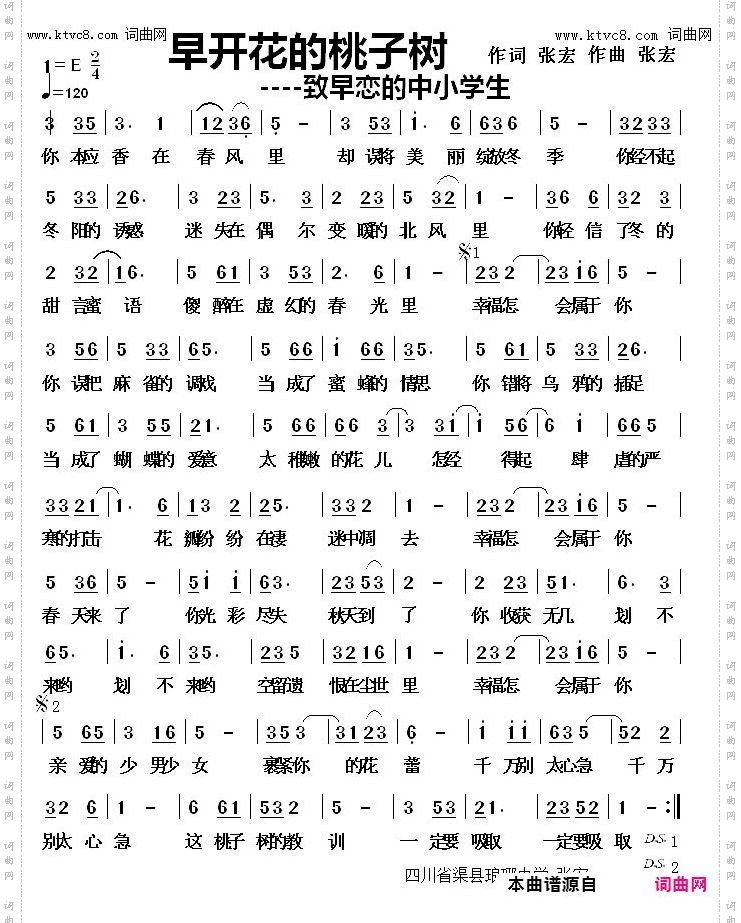 www.ktvc8.com 词曲网
www.ktvc8.com 词曲网
早开花的桃子树
作词 张宏 作曲 张宏
1=E 2/4
♩=120
----致早恋的中小学生
3 35 | 3. 1 | 1236 | 5 - | 3 53 | 1. 6 | 636 6 | 5 - | 3233 |
你 本应 香 在 春风 里 却 误将 美 丽 绽放冬 季 你经不起
5 33 | 26. | 3 23 | 5. 3 | 2 23 | 5 32 | 1 - | 36 6 | 6 32 |
冬 阳的 诱惑 迷 失在 偶 尔 变 暖的 北 风 里 你轻 信 了冬 的
𝄋1
2 32 | 16. | 5 61 | 3 53 | 2. 6 | 1 - | 232 2 | 2316 | 5 - |
甜 言蜜 语 傻 醉在 虚 幻的 春 光 里 幸福怎 会属于 你
3 56 | 5 33 | 65. | 5 66 | 1 66 | 35. | 5 61 | 5 33 | 26. |
你 误把 麻 雀的 调戏 当 成了 蜜 蜂的 情思 你 错将 乌 鸦的 插足
5 61 | 3 55 | 21. | 5 66 | 66 3 | 3 31 | 1 56 | 6 1 | 66 5 |
当 成了 蝴 蝶的 爱意 太 稚嫩 的花 儿 怎经 得起 肆 虐的 严
3321 | 1. 6 | 13 2 | 25. | 3 32 | 1 - | 232 2 | 2316 | 5 - |
寒的打击 花 瓣纷 纷 在凄 迷中凋 去 幸福怎 会属于 你
5 36 | 5 - | 51 1 | 63. | 2353 | 2 - | 2 23 | 51. | 6. 3 |
春 天来 了 你光 彩 尽失 秋天到 了 你 收获 无几 划 不
65. | 1. 6 | 35. | 235 | 3216 | 1 - | 232 2 | 2316 | 5 - |
来哟 划 不 来哟 空留遗 恨在尘世 里 幸福怎 会属于 你
𝄋2
5 65 | 3 16 | 5 - | 353 | 3123 | 6 - | 1 11 | 635 | 52 2 |
亲 爱的 少 男少 女 裹紧你 的花 蕾 千 万别 太心急 千 万
32 6 | 1 - | 6 61 | 532 | 2 - | 3 53 | 21. | 2352 | 1 - :||
别太 心 急 这 桃子 树的教 训 一 定要 吸取 一定要吸 取
D.S. 1
D.S. 2
四川省渠县
本曲谱源自
词曲网
词曲网